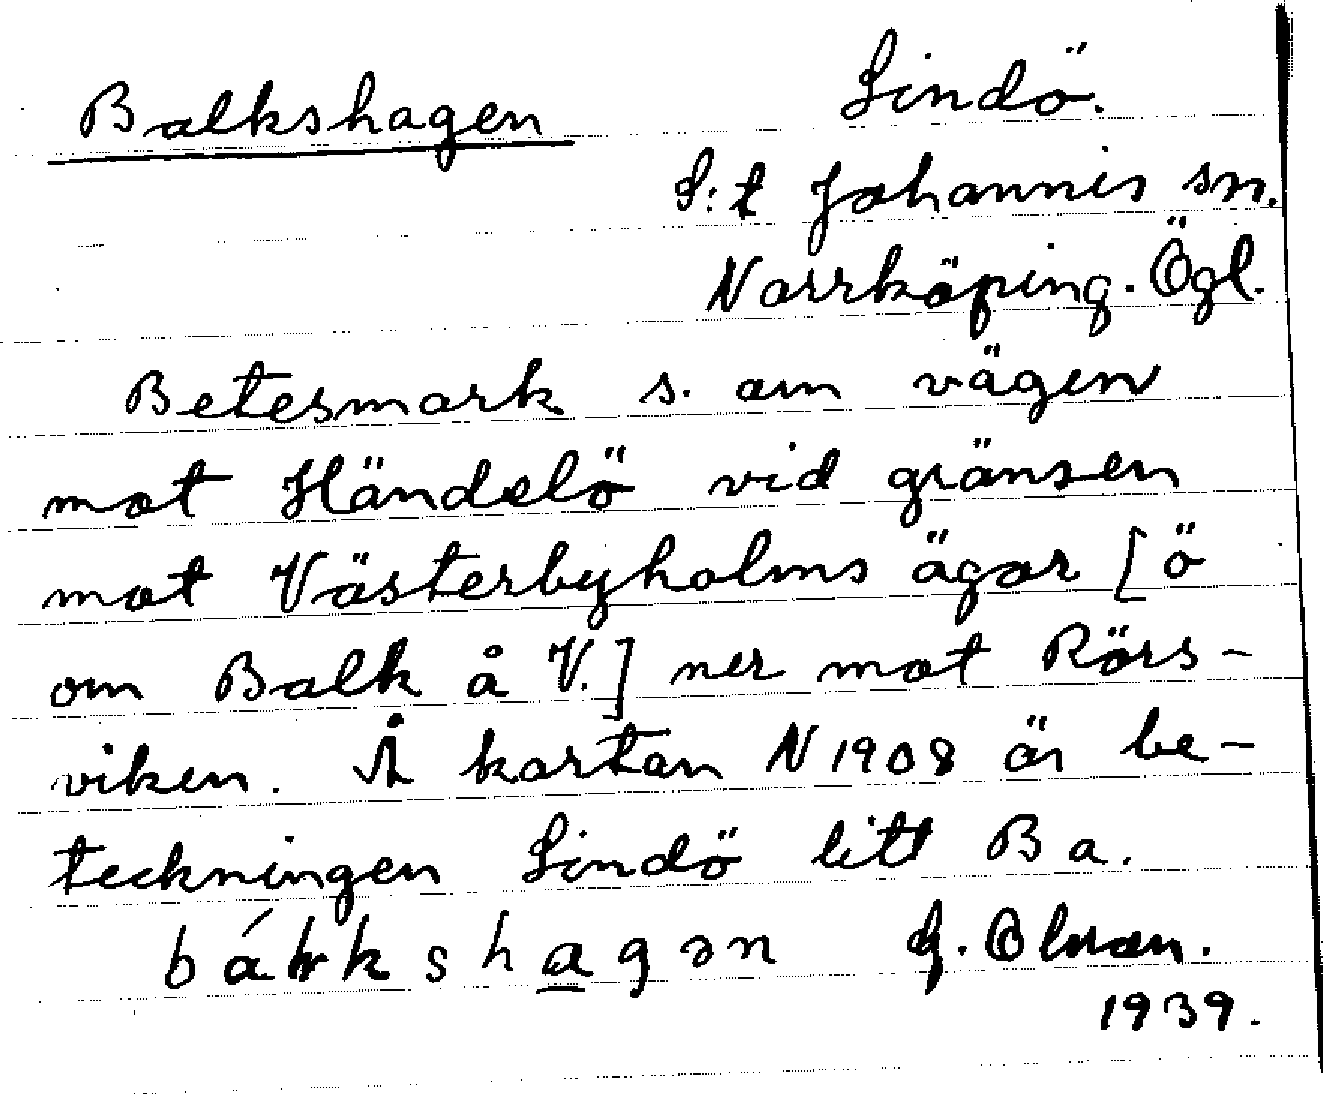 Balkshagen
Lindö.
S:t Johannis sn.
Norrköping. Ögl.
Betesmark s. om vägen
mot Händelö vid gränsen
mot Västerbyholms ägor [ö
om Balk å V.] ner mot Rörs-
viken. Å kartan N 1908 är be-
teckningen Lindö litt Ba.
kshagən G.
1939.